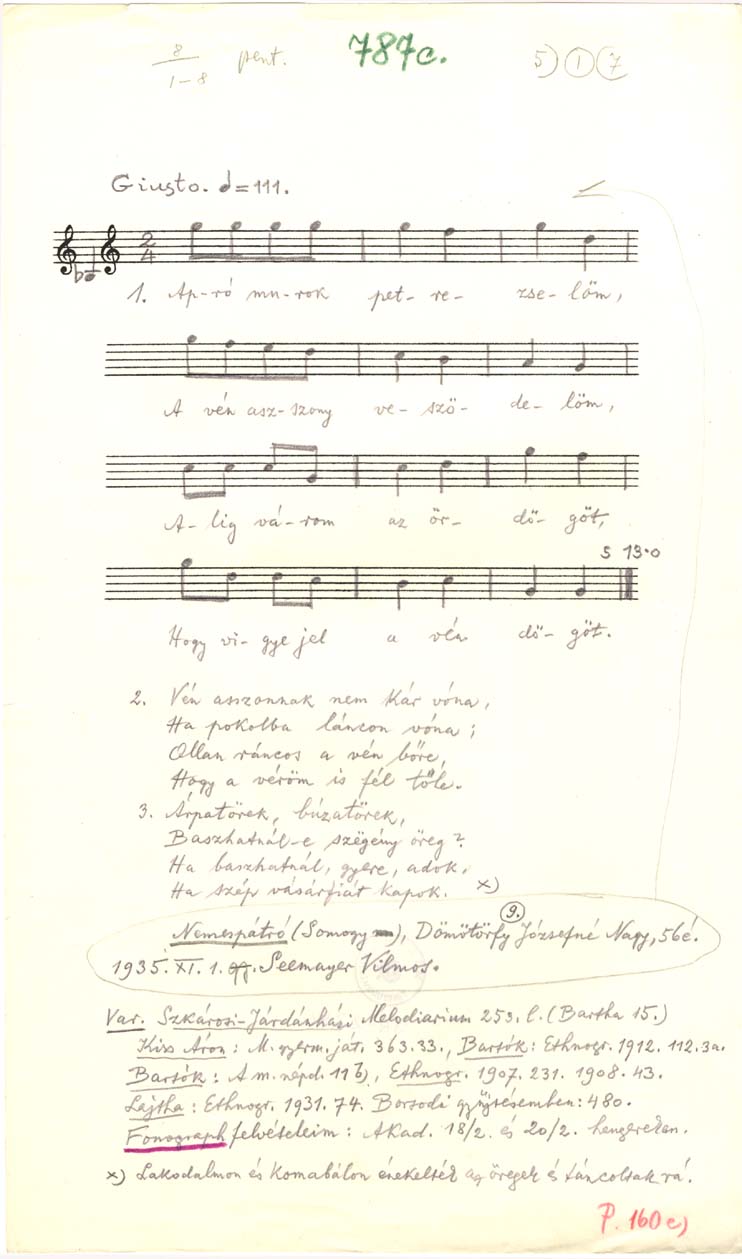 8 pent. 787c. 5 1 7
1-8
Giusto. ♩=111.
2
4
1. Ap-ró mu-rok pet-re- zse-löm,
A vén asz-szony ve-szö- de-löm,
A-lig vá-rom az ör- dö- göt,
5 13·0
Hogy vi-gye jel a vén dö- göt.
2. Vén asszonnak nem kár vóna,
Ha pokolba láncon vóna;
Ollan ráncos a vén bőre,
Hogy a véröm is fél tőle.
3. Árpatörek, búzatörek,
Baszhatnál-e szëgény öreg?
Ha baszhatnál, gyere, adok,
Ha szép vásárfiát kapok. x)
9.
Nemespátró (Somogy), Dömötörfy Józsefné Nagy, 56é.
1935. XI. 1. Seemayer Vilmos.
Var. Szkárosi-Járdánházi Melodiarium 253. l. (Bartha 15.)
Kiss Áron: M. gyerm. ját. 363.33., Bartók: Ethnogr. 1912. 112.3a.
Bartók: A m. népd. 11 b), Ethnogr. 1907. 231. 1908. 43.
Lajtha: Ethnogr. 1931. 74. Borsodi gyűjtésemben: 480.
Fonograph felvételeim: Akad. 18/2. és 20/2. hengereken.
x) Lakodalmon és komabálon énekelték az öregek és táncoltak rá.
P. 160c)